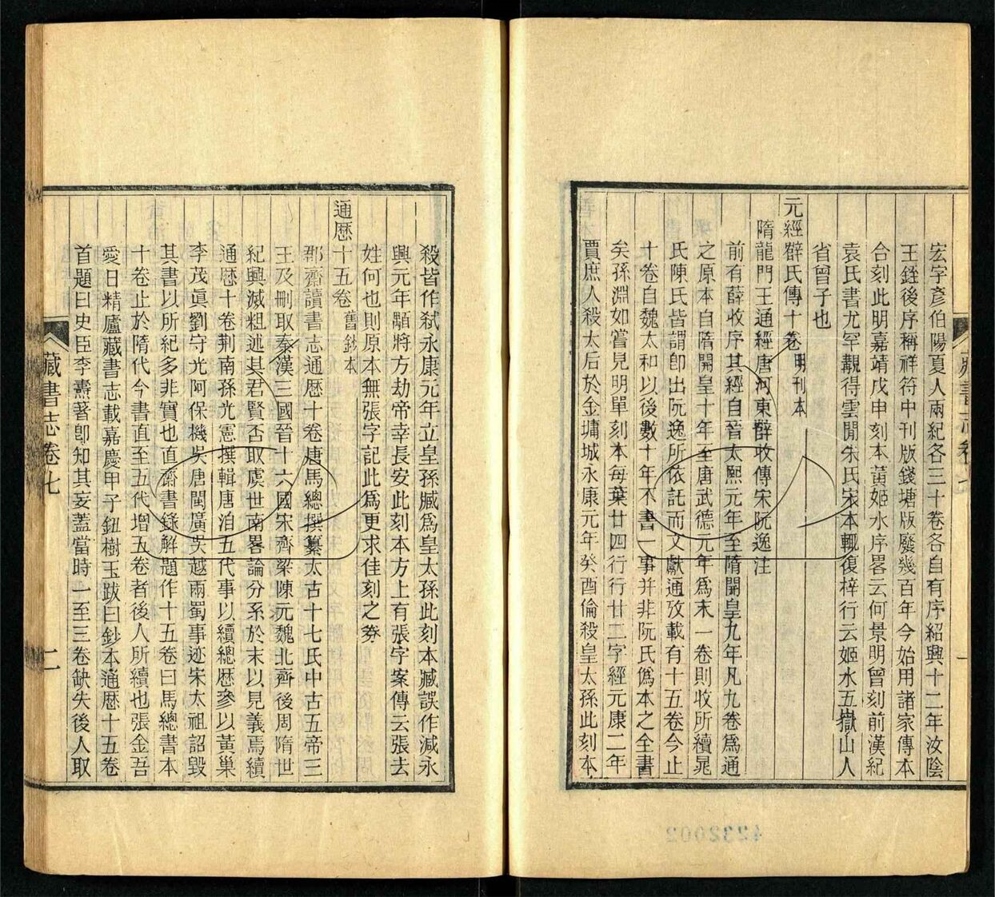 宏字彥伯陽夏人兩紀各三十卷各自有序紹興十二年汝陰
王銍後序稱祥符中刊版錢塘版廢幾百年今始用諸家傳本
合刻此明嘉靖戊申刻本黃姬水序畧云何景明曾刻前漢紀
袁氏書尤罕覯得雲閒朱氏宋本輒復梓行云姬水五嶽山人
省曾子也
元經薛氏傳十卷明刊本
隋龍門王通經唐河東薛收傳宋阮逸注
前有薛收序其經自晉太熙元年至隋開皇九年凡九卷爲通
之原本自隋開皇十年至唐武德元年爲末一卷則收所續晁
氏陳氏皆謂卽出阮逸所依託而文獻通攷載有十五卷今止
十卷自魏太和以後數十年不書一事并非阮氏僞本之全書
矣孫淵如嘗見明單刻本每葉廿四行行廿二字經元康二年
賈庶人殺太后於金墉城永康元年癸酉倫殺皇太孫此刻本
殺皆作弒永康元年立皇孫臧爲皇太孫此刻本臧誤作減永
興元年顒將方劫帝幸長安此刻本方上有張字案傳云張去
姓何也則原本無張字記此爲更求佳刻之券
通歷十五卷舊鈔本
郡齋讀書志通歷十卷唐馬總撰纂太古十七氏中古五帝三
王及刪取秦漢三國晉十六國宋齊梁陳元魏北齊後周隋世
紀興滅粗述其君賢否取虞世南畧論分系於末以見義焉續
通歷十卷荆南孫光憲撰輯唐洎五代事以續總歷參以黃巢
李茂眞劉守光阿保機吳唐閩廣吳越兩蜀事迹宋太祖詔毀
其書以所紀多非實也直齋書錄解題作十五卷曰馬總書本
十卷止於隋代今書直至五代增五卷者後人所續也張金吾
愛日精廬藏書志載嘉慶甲子鈕樹玉跋曰鈔本通歷十五卷
首題曰史臣李燾著卽知其妄蓋當時一至三卷缺失後人取
藏書志卷七
二
4232002